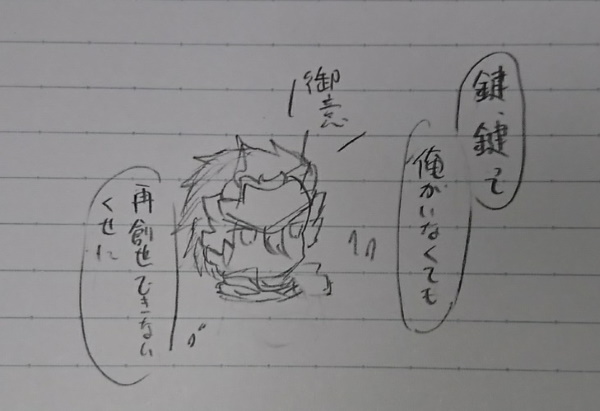 鍵、鍵って
俺がいなくても
御意
再創世できない
くせに